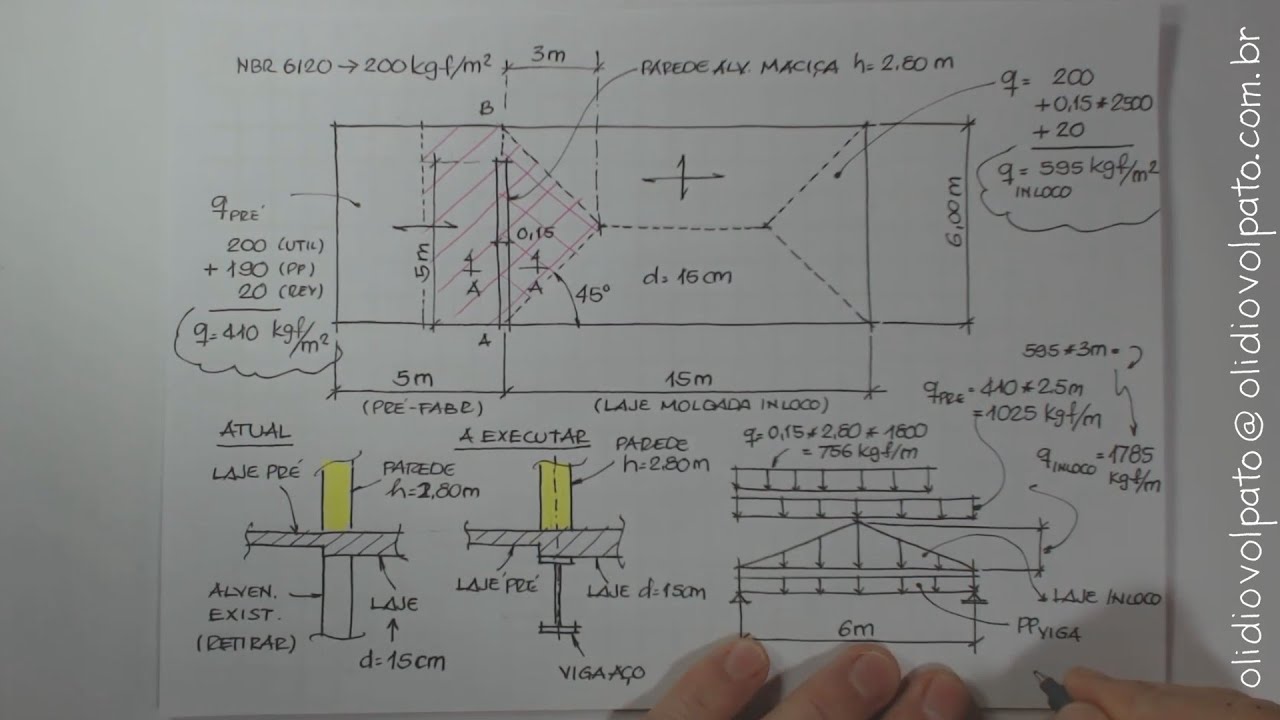 NBR 6120 → 200 kgf/m²
3m
PAREDE ALV. MACIÇA h=2,80 m
q= 200
+0,15*2500
+20
q= 595 kgf/m²
INLOCO
B
q PRÉ
200 (UTIL)
+190 (PP)
20 (REV)
q=410 kgf/m²
5m
0,15
1/A
1/A
45°
d=15cm
6,00m
A
5m
(PRÉ-FABR)
15m
(LAJE MOLGADA INLOCO)
595*3m=
q PRÉ = 410*2.5m
=1025 kgf/m
q INLOCO =1785
kgf/m
ATUAL
LAJE PRÉ
PAREDE
h=2,80m
ALVEN.
EXIST.
(RETIRAR)
LAJE
d=15cm
A EXECUTAR
PAREDE
h=2,80m
LAJE PRÉ
LAJE d=15cm
VIGA AÇO
q=0,15*2,80*1800
=756 kgf/m
LAJE INLOCO
PP VIGA
6m
olidiovolpato@olidiovolpato.com.br